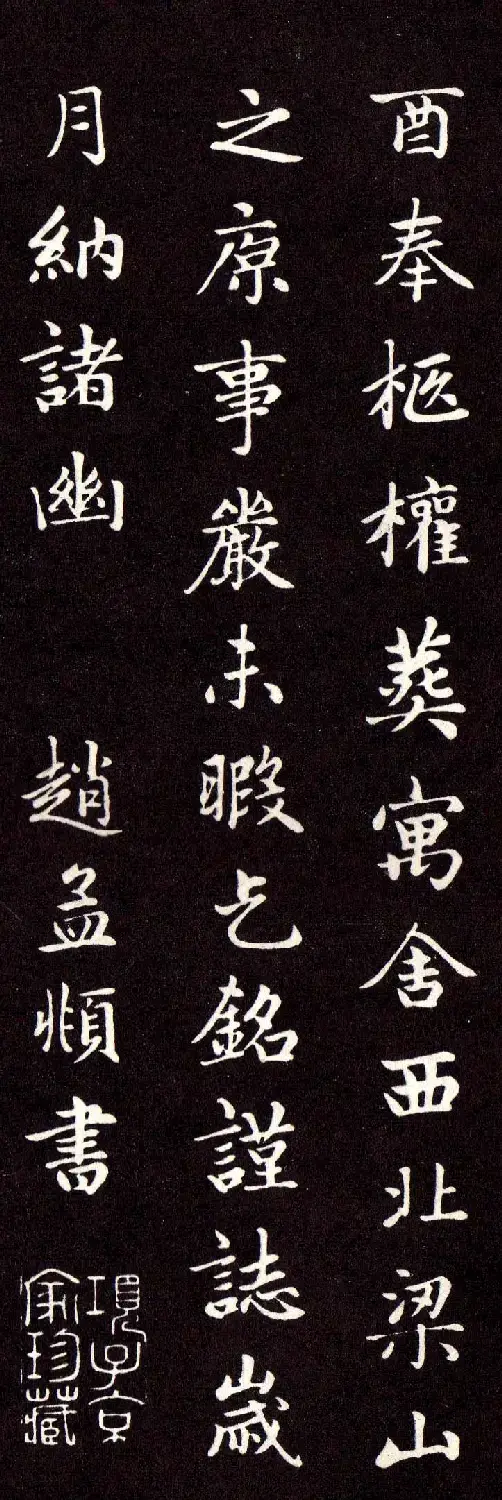 酉奉柩權葬寓舍西北梁山
之原事嚴未暇乞銘謹誌歲
月納諸幽
趙孟頫書
項子京
家珍藏